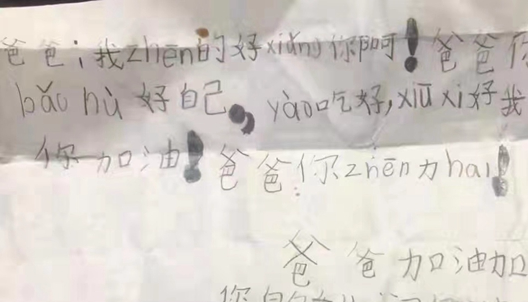 爸爸；我zhēn的好xiǎng你啊！爸爸你
bǎo hù 好自己，yào吃好,xiū xi好我
你加油！爸爸你zhēn力hai！
爸爸加油加